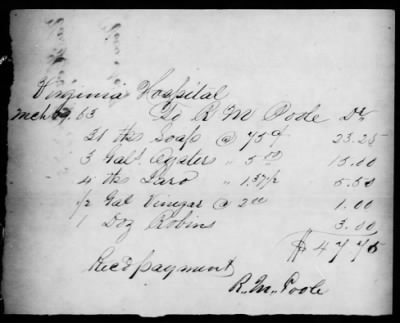 Virginia Hospital
Mch 09, 63 To R M Poole Dr
31 lbs Soap @ 75¢ 23.25
3 Gals Oysters " 5.00 15.00
4 lbs Lard " 1.37½ 5.50
1/2 Gal Vinegar @ 2.00 1.00
1 Doz Robins 3.00
$47.75
Rec'd payment
R. M. Poole